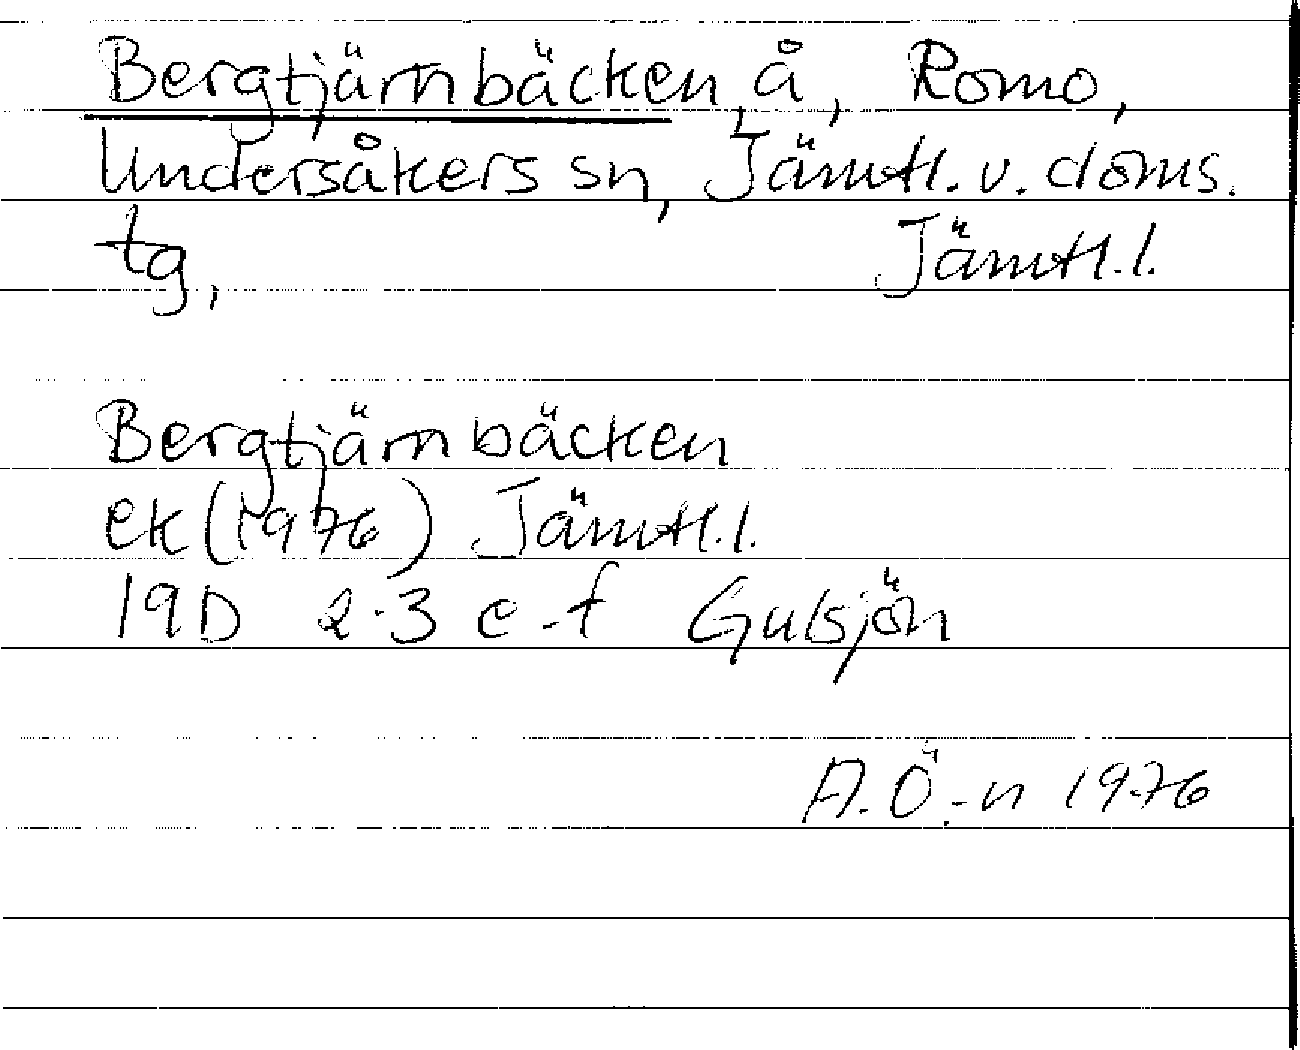 Bergtjärnbäcken, å, Romo,
Undersåkers sn, Jämtl. v. doms.
tg, Jämtl. l.
Bergtjärnbäcken
ek (1976) Jämtl. l.
19D 2-3 e-f Gulsjön
A. Ö.-n 1976